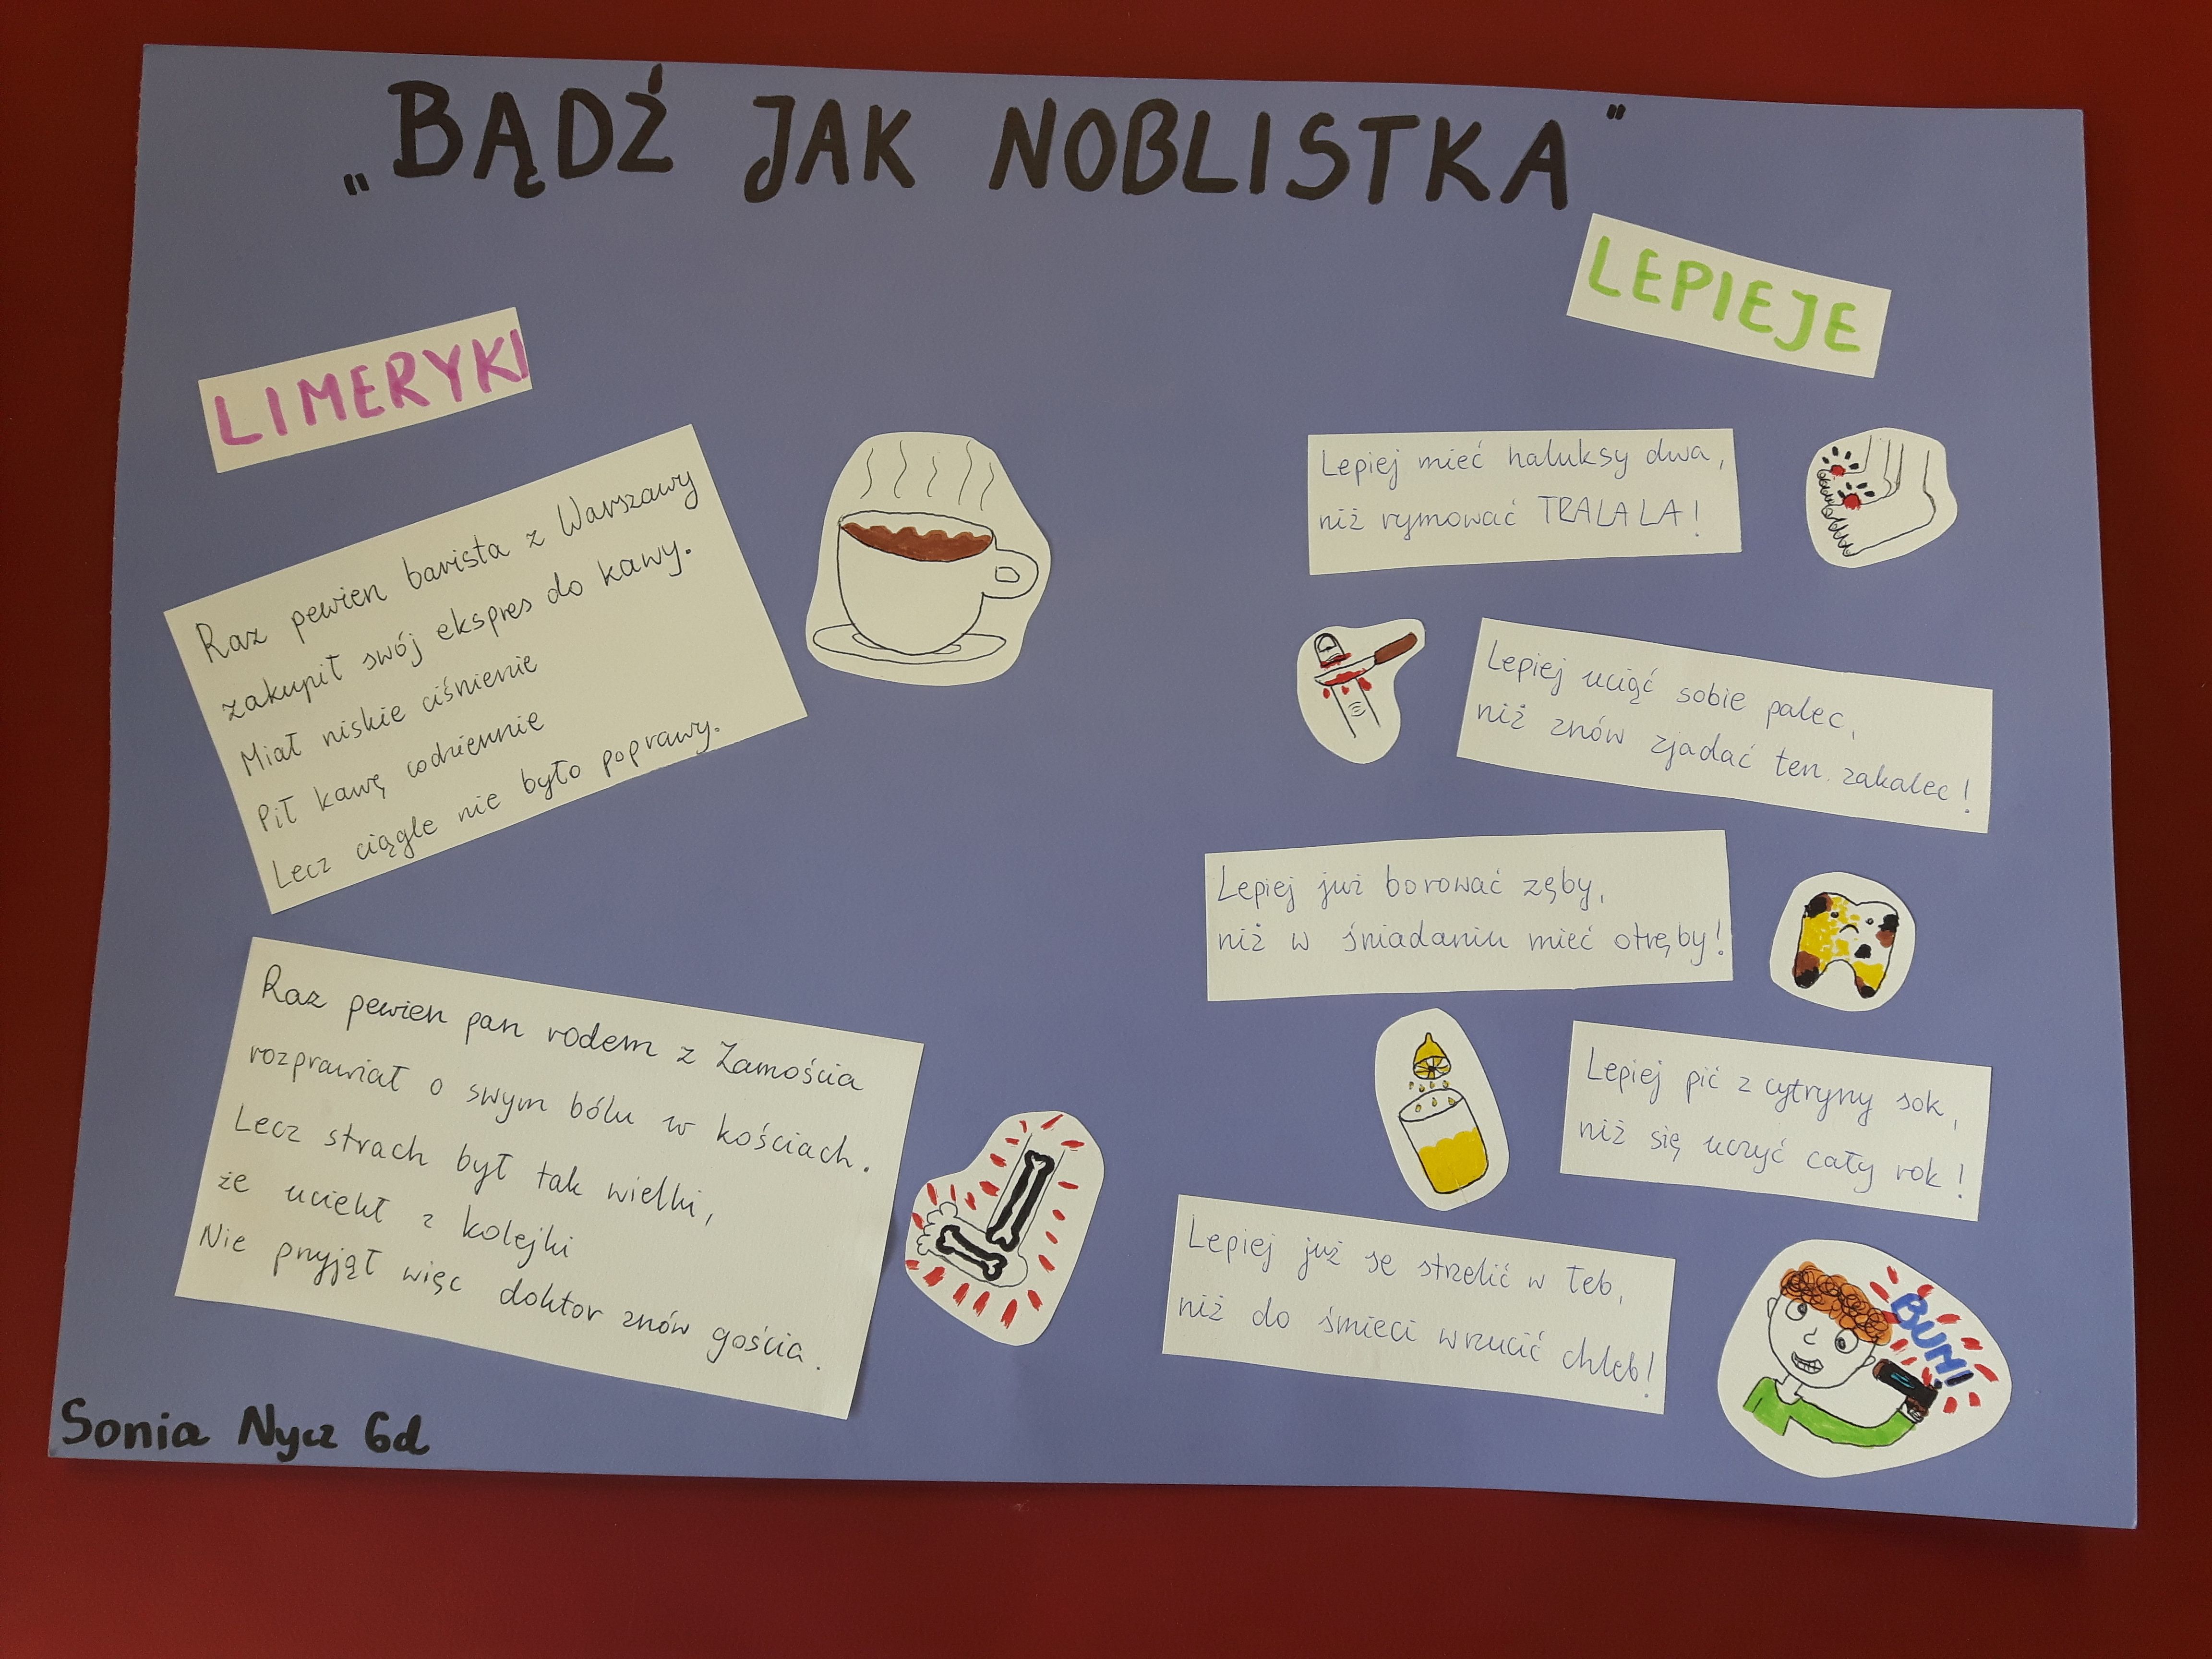 „BĄDŹ JAK NOBLISTKA”
LIMERYKI
Raz pewien barista z Warszawy
zakupił swój ekspres do kawy.
Miał niskie ciśnienie
Pił kawę codziennie
Lecz ciągle nie było poprawy.
Raz pewien pan rodem z Zamościa
rozprawiał o swym bólu w kościach.
Lecz strach był tak wielki,
że uciekł z kolejki
Nie przyjął więc doktor znów gościa.
Sonia Nycz 6d
LEPIEJE
Lepiej mieć haluksy dwa,
niż rymować TRALALA!
Lepiej uciąć sobie palec,
niż znów zjadać ten zakalec!
Lepiej już borować zęby,
niż w śniadaniu mieć otręby!
Lepiej pić z cytryny sok,
niż się uczyć cały rok!
Lepiej już se strzelić w łeb,
niż do śmieci wrzucić chleb!
BUM!